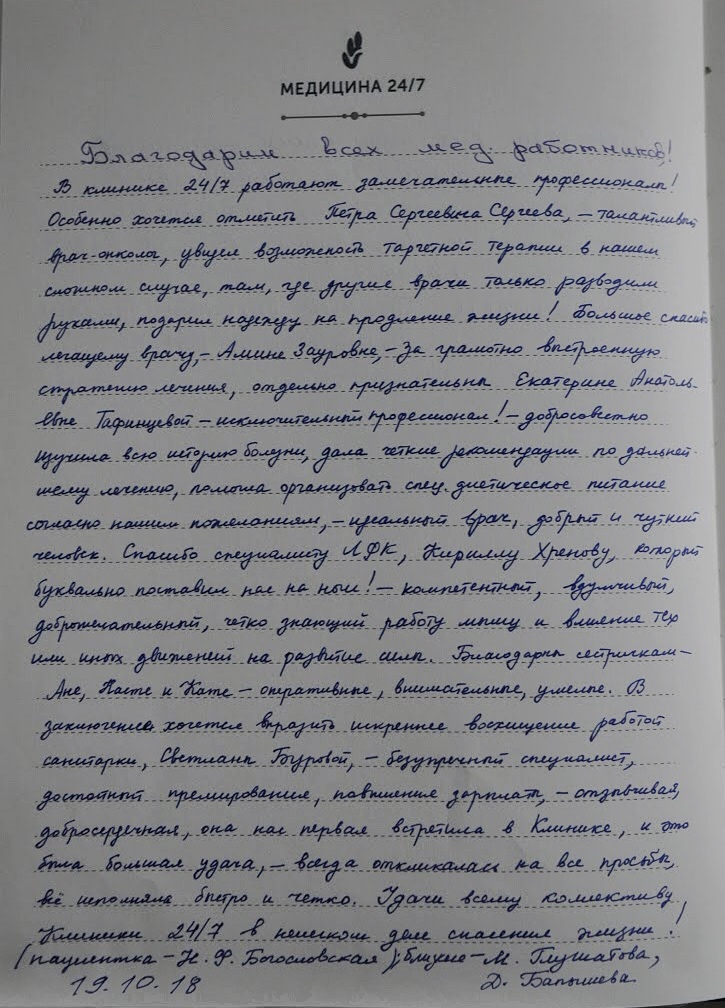 МЕДИЦИНА 24/7
Благодарим всех мед. работников!
В клинике 24/7 работают замечательные профессионалы!
Особенно хочется отметить Петра Сергеевича Сергеева, – талантливый
врач-онколог, увидел возможность таргетной терапии в нашем
сложном случае, там, где другие врачи только разводили
руками, подарил надежду на продление жизни! Большое спасибо
лечащему врачу, – Амине Зауровне, – за грамотно выстроенную
стратегию лечения, отдельно признательны Екатерине Анатоль-
евне Тафинцевой – исключительный профессионал! – добросовестно
изучила всю историю болезни, дала четкие рекомендации по дальней-
шему лечению, помогла организовать спец. диетическое питание
согласно нашим пожеланиям, – идеальный врач, добрый и чуткий
человек. Спасибо специалисту ЛФК, Кириллу Хренову, который
буквально поставил нас на ноги! – компетентный, вдумчивый,
доброжелательный, четко знающий работу мышц и влияние тех
или иных движений на развитие силы. Благодарны сестричкам –
Ане, Насте и Кате – оперативные, внимательные, умелые. В
заключение хочется выразить искреннее восхищение работой
санитарки, Светланы Буровой, – безупречный специалист,
достойный премирования, повышения зарплаты, – отзывчивая,
добросердечная, она нас первая встретила в Клинике, и это
была большая удача, – всегда откликалась на все просьбы,
всё исполняла быстро и четко. Удачи всему коллективу
Клиники 24/7 в нелегком деле спасения жизни!
(пациентка – Н. Ф. Богословская); близкие – М. Глушатова,
19.10.18 Д. Бапышева